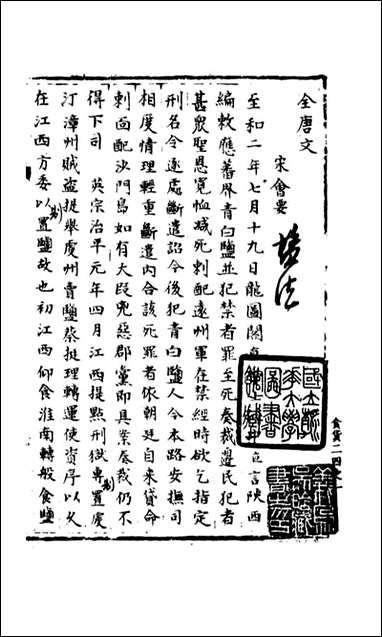 全唐文
宋會要
鹽法
至和二年七月十九日龍圖閣直言陝西
編敕應蕃界青白鹽並犯禁者罪至死奏裁邊民犯者
甚衆聖恩寬恤減死刺配遠州軍在禁經時欲乞指定
刑名令逐處斷遣詔今後犯青白鹽人令本路安撫司
相度情理輕重斷遣内合該死罪者依朝廷自來貸命
刺面配沙門島如有大叚兇惡郡黨即具案奏裁仍不
得下司 英宗治平元年四月江西提點刑獄專置虔
汀漳州賊盗提舉虔州賣鹽蔡挺理轉運使資序以久
在江西方委以置鹽故也初江西仰食淮南轉般食鹽
劃
劃
食貨二四之一